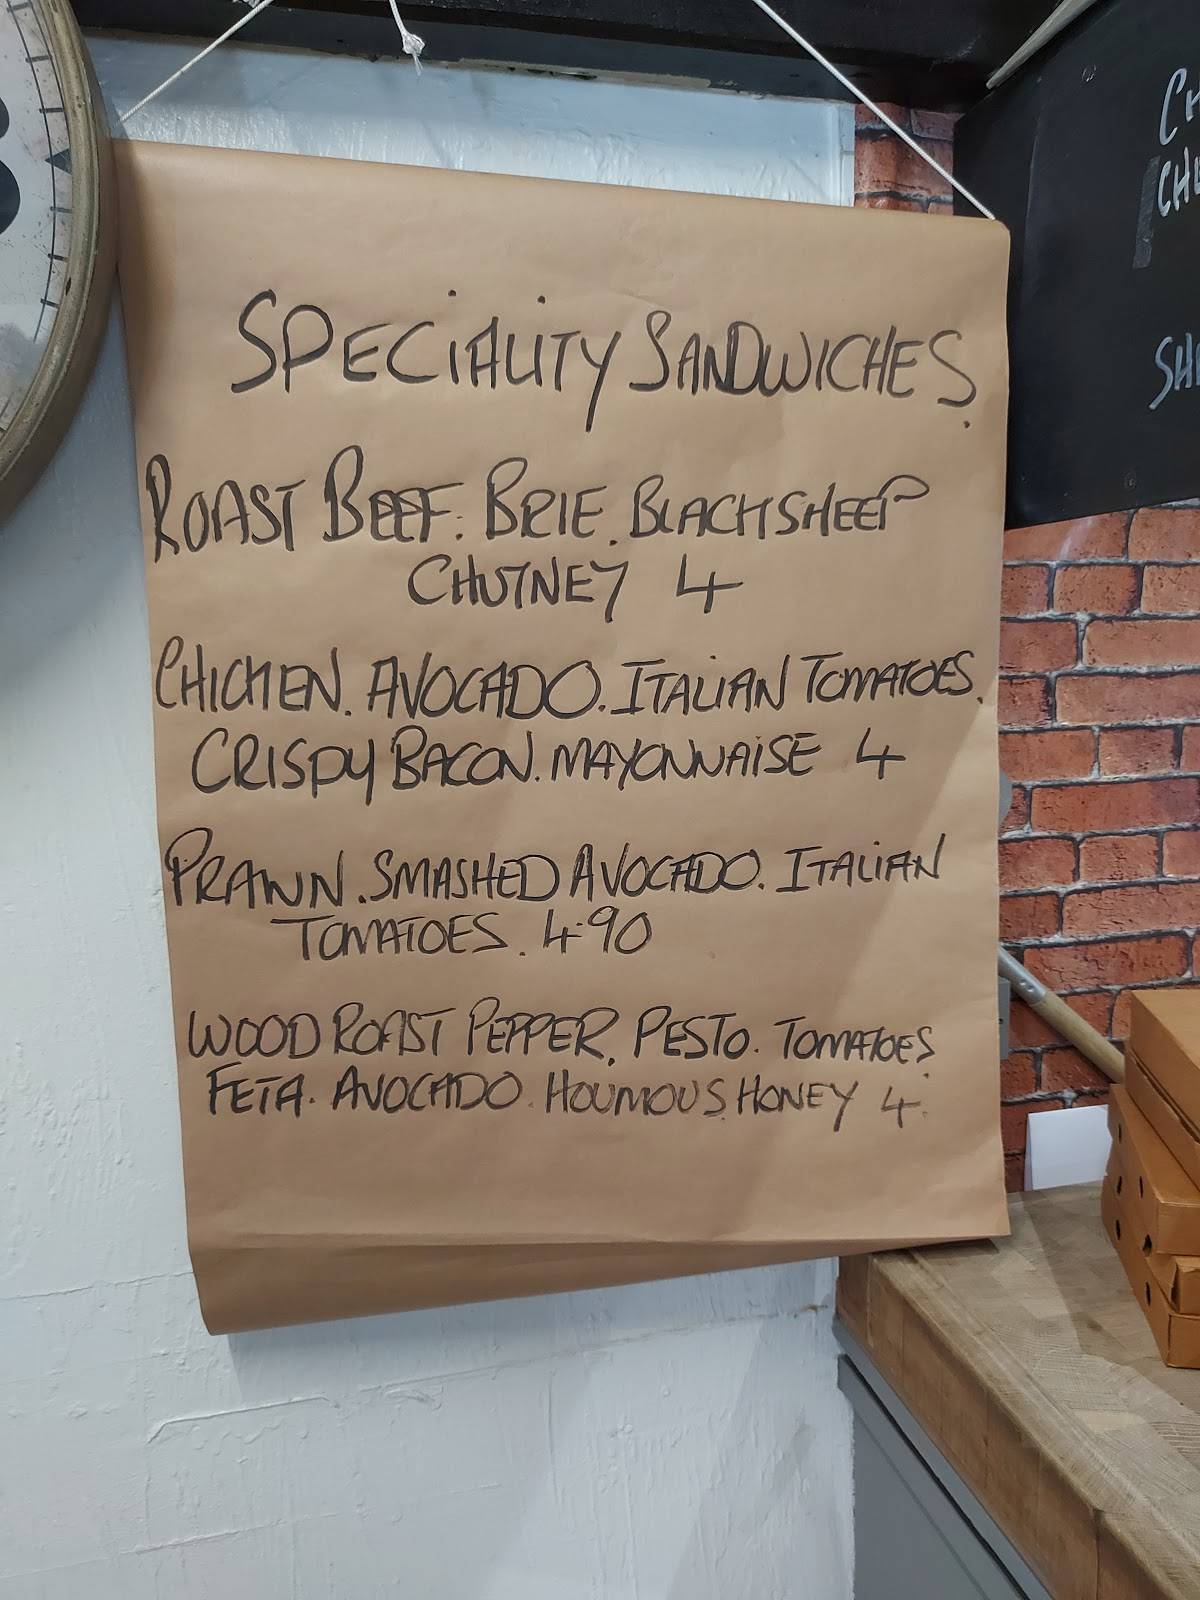 SPECIALITY SANDWICHES.
ROAST BEEF. BRIE. BLACKSHEEP
CHUTNEY 4
CHICKEN. AVOCADO. ITALIAN TOMATOES.
CRISPY BACON. MAYONNAISE 4
PRAWN. SMASHED AVOCADO. ITALIAN
TOMATOES. 4.90
WOOD ROAST PEPPER. PESTO. TOMATOES
FETA. AVOCADO. HOUMOUS HONEY 4.